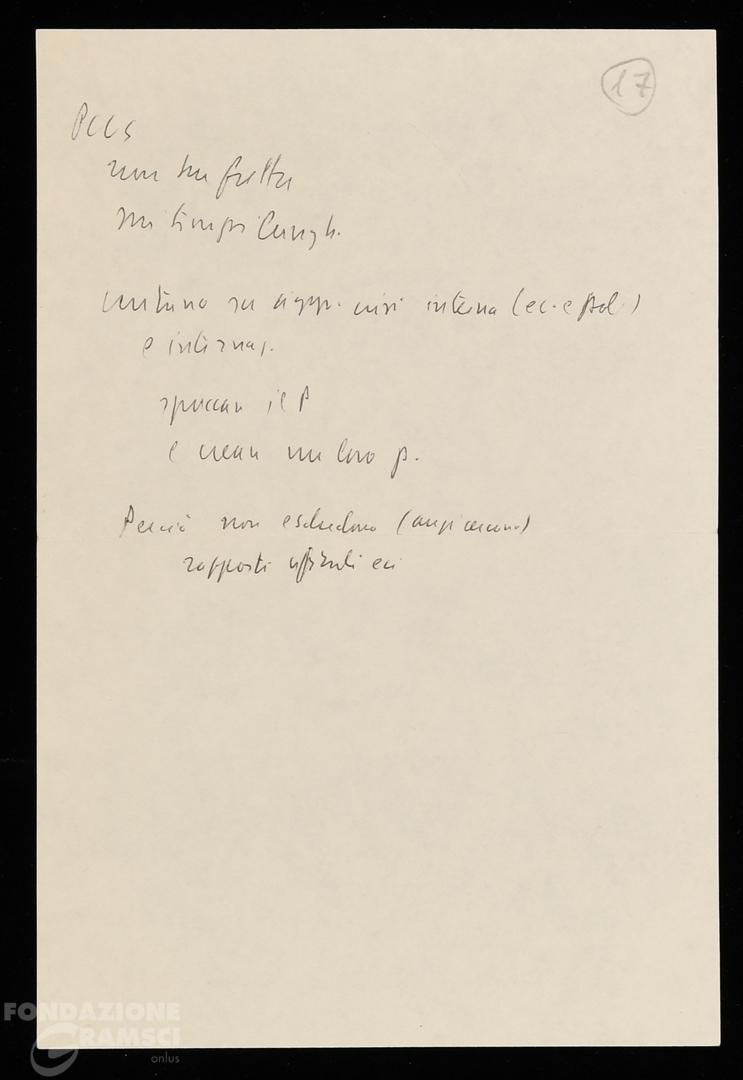 17
PCUS
non ha fretta
sui tempi lunghi
puntano su aggr. crisi interna (ec. e pol.)
e internaz.
spaccare il P
e creare un loro p.
Perciò non escludono (anzi cercano)
rapporti ufficiali ecc
FONDAZIONE
GRAMSCI
onlus